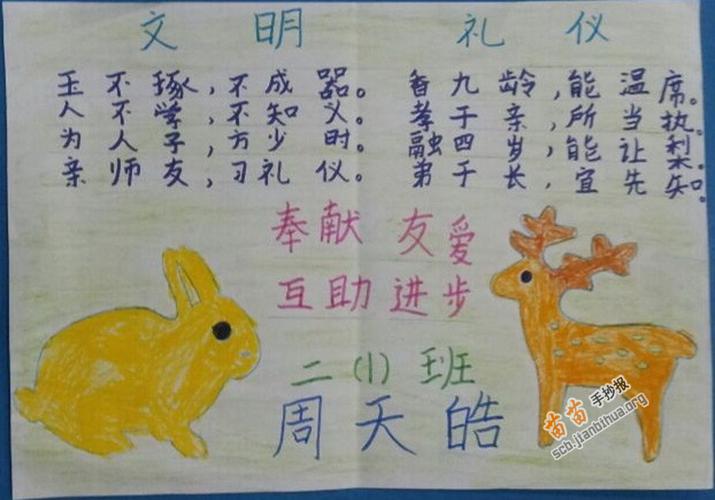 文明礼仪
玉不琢,不成器。
人不学,不知义。
为人子,方少时。
亲师友,习礼仪。
香九龄,能温席。
孝于亲,所当执。
融四岁,能让梨。
弟于长,宜先知。
奉献 友爱
互助 进步
二(1)班
周天皓
苗苗手抄报
scb.jianbihua.org